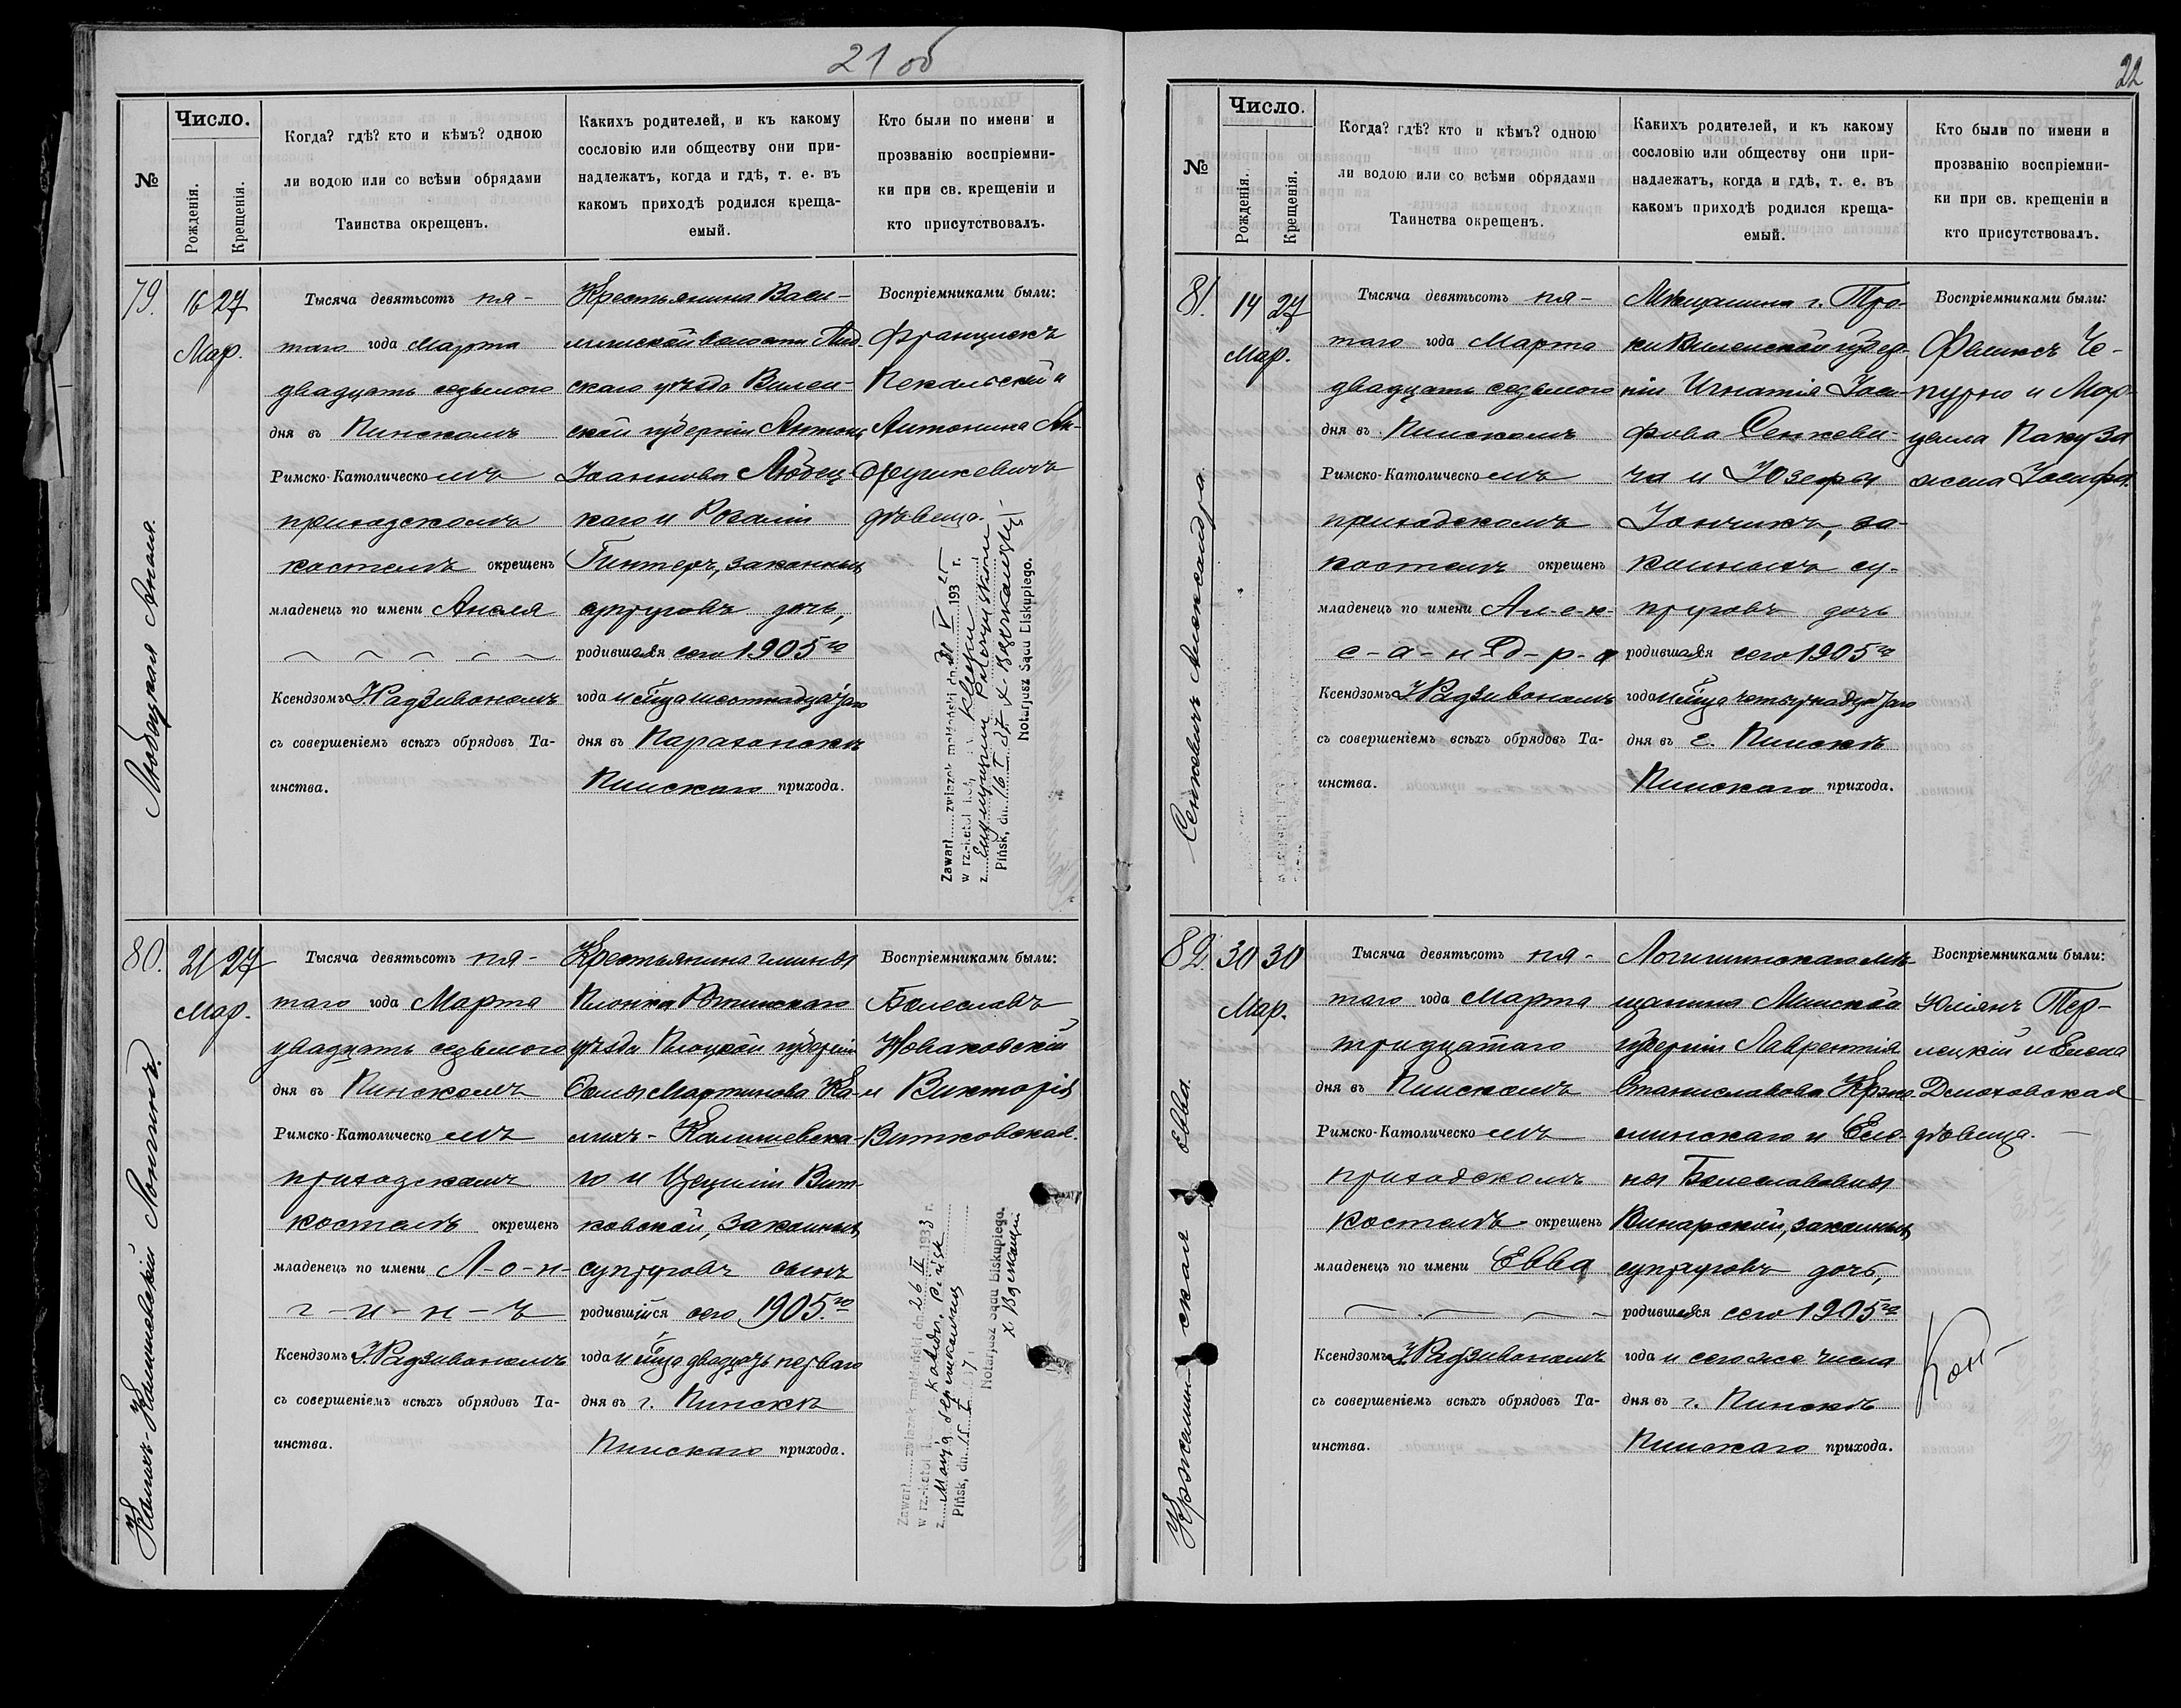 21 об
№
Число.
Рожденія.
Крещенія.
Когда? гдѣ? кто и кѣмъ? одною
ли водою или со всѣми обрядами
Таинства окрещенъ.
Какихъ родителей, и къ какому
сословію или обществу они при-
надлежатъ, когда и гдѣ, т. е. въ
какомъ приходѣ родился креща-
емый.
Кто были по имени и
прозванію воспріемни-
ки при св. крещеніи и
кто присутствовалъ.
79.
16 27
Мар.
Любецкая Анеля.
Тысяча девятьсотъ пя-
таго года Марта
двадцать седьмого
дня въ Пинскомъ
Римско-Католическомъ
приходскомъ
костелѣ окрещенъ
младенецъ по имени Анеля
Ксендзомъ І. Радзивономъ
съ совершеніемъ всѣхъ обрядовъ Та-
инства.
Крестьянина Васи-
лишской волости Лид-
скаго уѣзда Вилен-
ской губерніи Антона
Іоаннова Любец-
каго и Розаліи
Гинтеръ, законныхъ
супруговъ дочь,
родившаяся сего 1905 го
года и м-ца шестнадцатаго
дня въ
Пинскаго прихода.
Воспріемниками были:
Францискъ
Пекальскій и
Антонина Ан-
друшкевичъ
дѣвица.
Zawarł związek małżeński dn. 31 V 193 r.
w rz.-katol koś.
z
Pińsk, dn. 16 I 37
Notarjusz Sądu Biskupiego.
80.
21 27
Мар.
Калихъ-Калишевскій Лонгинъ.
Тысяча девятьсотъ пя-
таго года Марта
двадцать седьмого
дня въ Пинскомъ
Римско-Католическомъ
приходскомъ
костелѣ окрещенъ
младенецъ по имени Л-о-н-
г-и-н-ъ
Ксендзомъ І. Радзивономъ
съ совершеніемъ всѣхъ обрядовъ Та-
инства.
Крестьянина гмины
уѣзда Плоцкой губерніи
Ѳомы Мартинова Ка-
лихъ-Калишевска-
го и Цециліи Вит-
ковской, законныхъ
супруговъ сынъ
родившійся сего 1905 го
года и м-ца двадцать перваго
дня въ г. Пинскѣ
Пинскаго прихода.
Воспріемниками были:
Болеславъ
Новаковскій
и Викторія
Витковская.
Zawarł związek małżeński dn. 26 II 1933 r.
w rz.-katol k. katedr. Pińsk
z Marją
Pińsk, dn. 15 I 37
Notarjusz Sądu Biskupiego.
22
№
Число.
Рожденія.
Крещенія.
Когда? гдѣ? кто и кѣмъ? одною
ли водою или со всѣми обрядами
Таинства окрещенъ.
Какихъ родителей, и къ какому
сословію или обществу они при-
надлежатъ, когда и гдѣ, т. е. въ
какомъ приходѣ родился креща-
емый.
Кто были по имени и
прозванію воспріемни-
ки при св. крещеніи и
кто присутствовалъ.
81.
14 27
Мар.
Сенкевичъ Александра.
Тысяча девятьсотъ пя-
таго года Марта
двадцать седьмого
дня въ Пинскомъ
Римско-Католическомъ
приходскомъ
костелѣ окрещенъ
младенецъ по имени Ал-е-к-
с-а-н-д-р-а
Ксендзомъ І. Радзивономъ
съ совершеніемъ всѣхъ обрядовъ Та-
инства.
Мѣщанина г. Тро-
ки Виленской губер-
ніи Игнатія Іоси-
фова Сенкеви-
ча и Юзефы
Іончикъ, за-
конныхъ су-
пруговъ дочь
родившаяся сего 1905 го
года и м-ца четырнадцатаго
дня въ г. Пинскѣ
Пинскаго прихода.
Воспріемниками были:
Феликсъ Че-
пурно и Мар-
целла
жена Іосифа.
82.
30 30
Мар.
Кржеминская Евва.
Тысяча девятьсотъ пя-
таго года Марта
тридцатаго
дня въ Пинскомъ
Римско-Католическомъ
приходскомъ
костелѣ окрещенъ
младенецъ по имени Евва
Ксендзомъ І. Радзивономъ
съ совершеніемъ всѣхъ обрядовъ Та-
инства.
Логишинскаго мѣ-
щанина Минской
губерніи Лаврентія
Станиславова Крже-
минскаго и Еле-
ны Болеславовны
Винарской, законныхъ
супруговъ дочь,
родившаяся сего 1905 го
года и сего же числа
дня въ г. Пинскѣ
Пинскаго прихода.
Воспріемниками были:
Юліянъ Тер-
лецкій и Елена
Дмоховская
дѣвица.